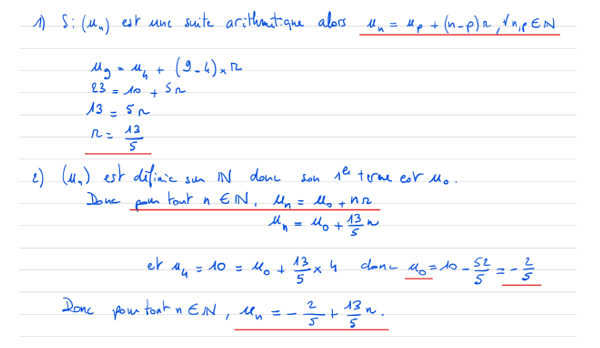 1) Si (u_n) est une suite arithmétique alors u_n = u_p + (n-p)r, ∀n,p ∈ ℕ
u_9 = u_4 + (9-4)×r
23 = 10 + 5r
13 = 5r
r = 13/5
2) (u_n) est définie sur ℕ donc son 1er terme est u_0.
Donc pour tout n ∈ ℕ, u_n = u_0 + nr
u_n = u_0 + 13/5 n
et u_4 = 10 = u_0 + 13/5 × 4 donc u_0 = 10 - 52/5 = -2/5
Donc pour tout n ∈ ℕ, u_n = -2/5 + 13/5 n.